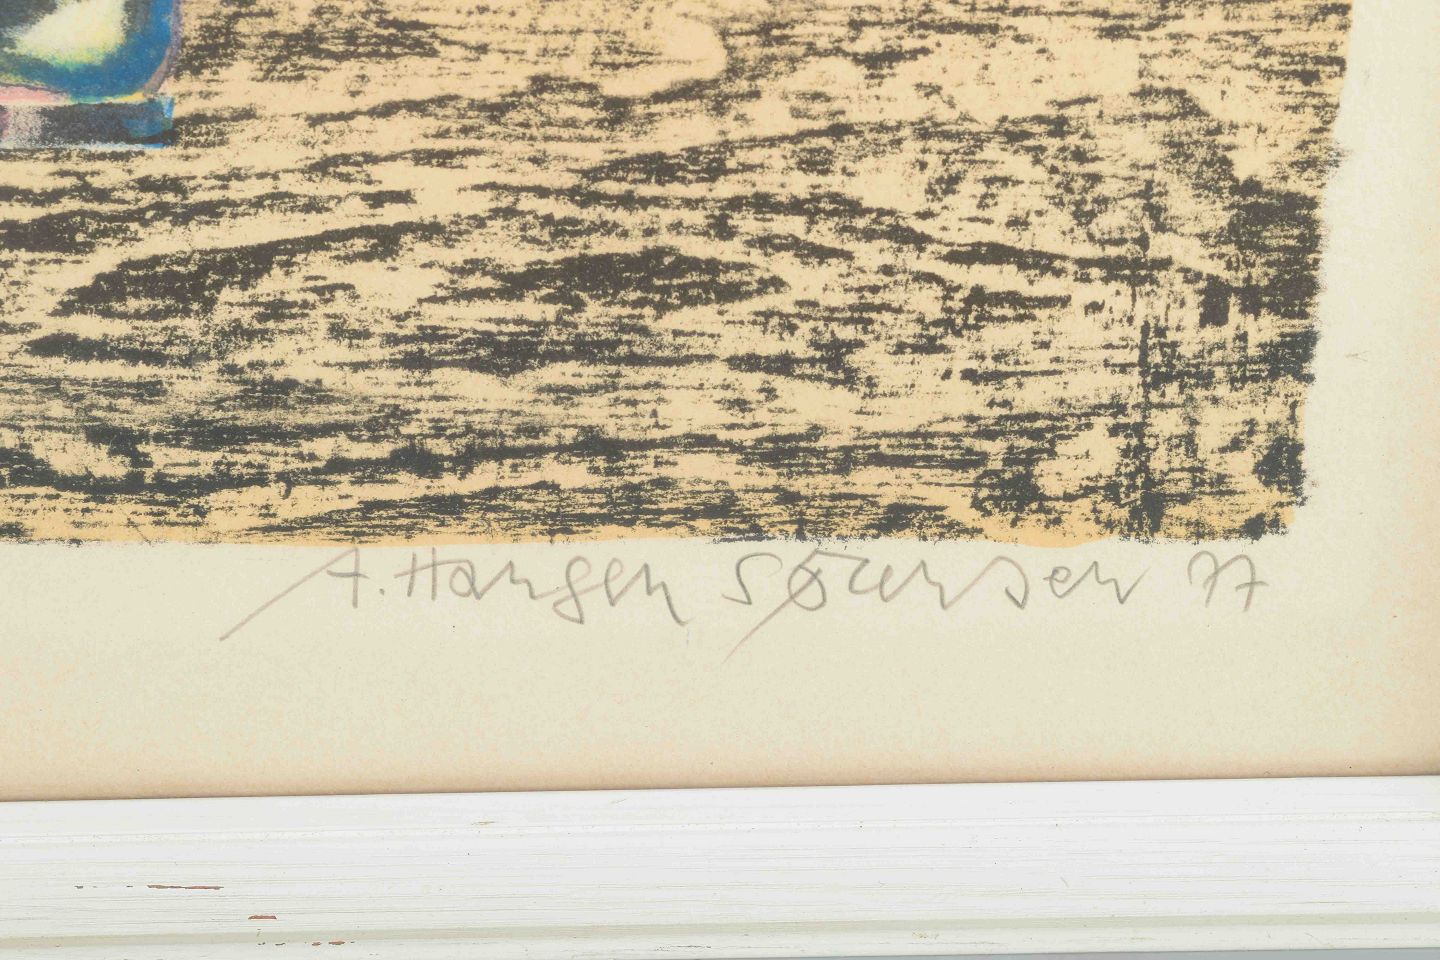 A. Hansen Sørensen 77